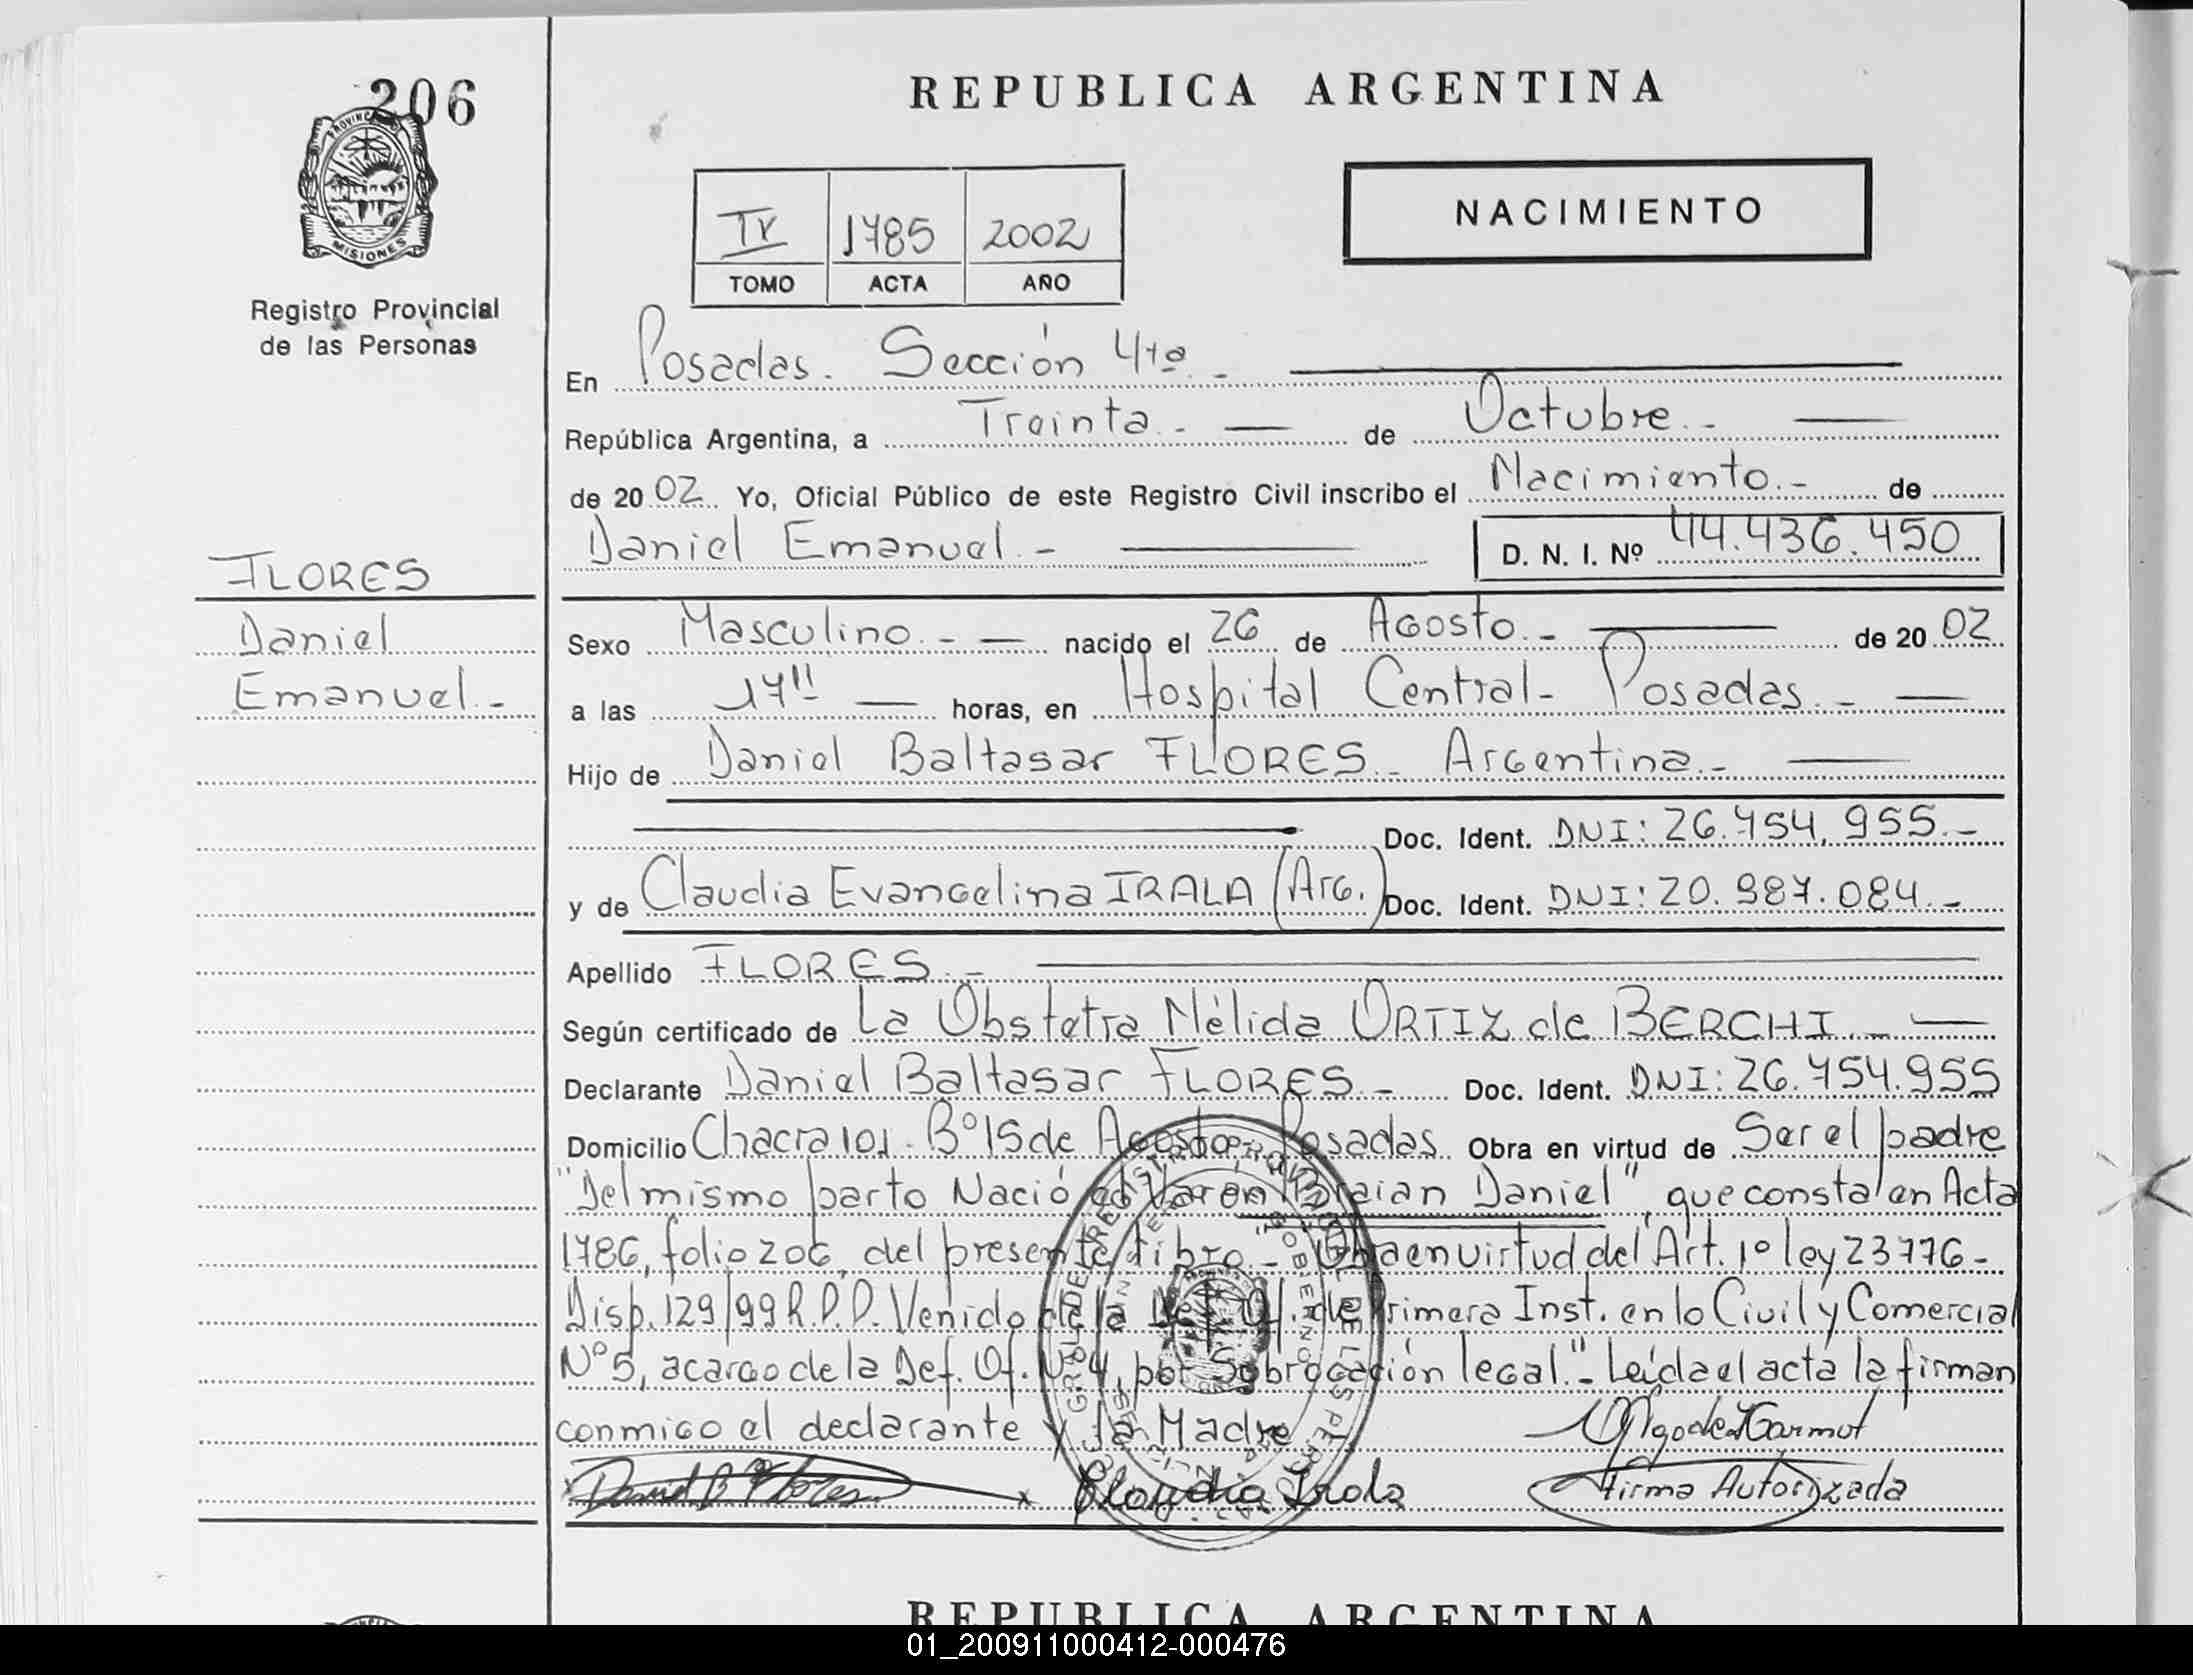 206
REPUBLICA ARGENTINA
PROVINCIA
MISIONES
Registro Provincial
de las Personas
IV 1785 2002
TOMO ACTA AÑO
NACIMIENTO
En Posadas. Sección 4ta.-
República Argentina, a Treinta.- de Octubre.-
de 2002. Yo, Oficial Público de este Registro Civil inscribo el Nacimiento.- de
Daniel Emanuel.- D. N. I. Nº 44.436.450
FLORES
Daniel
Emanuel.-
Sexo Masculino.- nacido el 26 de Agosto.- de 2002
a las 17 horas, en Hospital Central- Posadas.-
Hijo de Daniel Baltasar FLORES.. Argentina.-
Doc. Ident. DNI: 26.754.955.-
y de Claudia Evangelina IRALA (Arg.) Doc. Ident. DNI: 20.987.084.-
Apellido FLORES.-
Según certificado de La Obstetra Nélida ORTIZ de BERCHI.-
Declarante Daniel Baltasar FLORES.- Doc. Ident. DNI: 26.754.955
Domicilio Chacra 101- Bº 15 de Agosto.- Posadas. Obra en virtud de Ser el padre
"Del mismo parto Nació el Varon Daniel", que consta en Acta
1786, folio 206, del presente libro.- Obra en virtud del Art. 1º ley 23776-
Disp. 129/99 R.P.P. Venido de la Def. Of. de Primera Inst. en lo Civil y Comercial
Nº 5, a cargo de la Def. Of. Nº 4, por Sobrogación legal."- Leída el acta la firman
conmigo el declarante y la Madre
Daniel B Flores Claudia Irala Firma Autorizada
REPUBLICA ARGENTINA
01_200911000412-000476